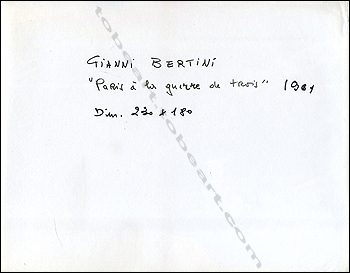 GIANNI BERTINI
"Paris à la guerre de trois" 1961
Dim. 230 x 180
tobeart.com